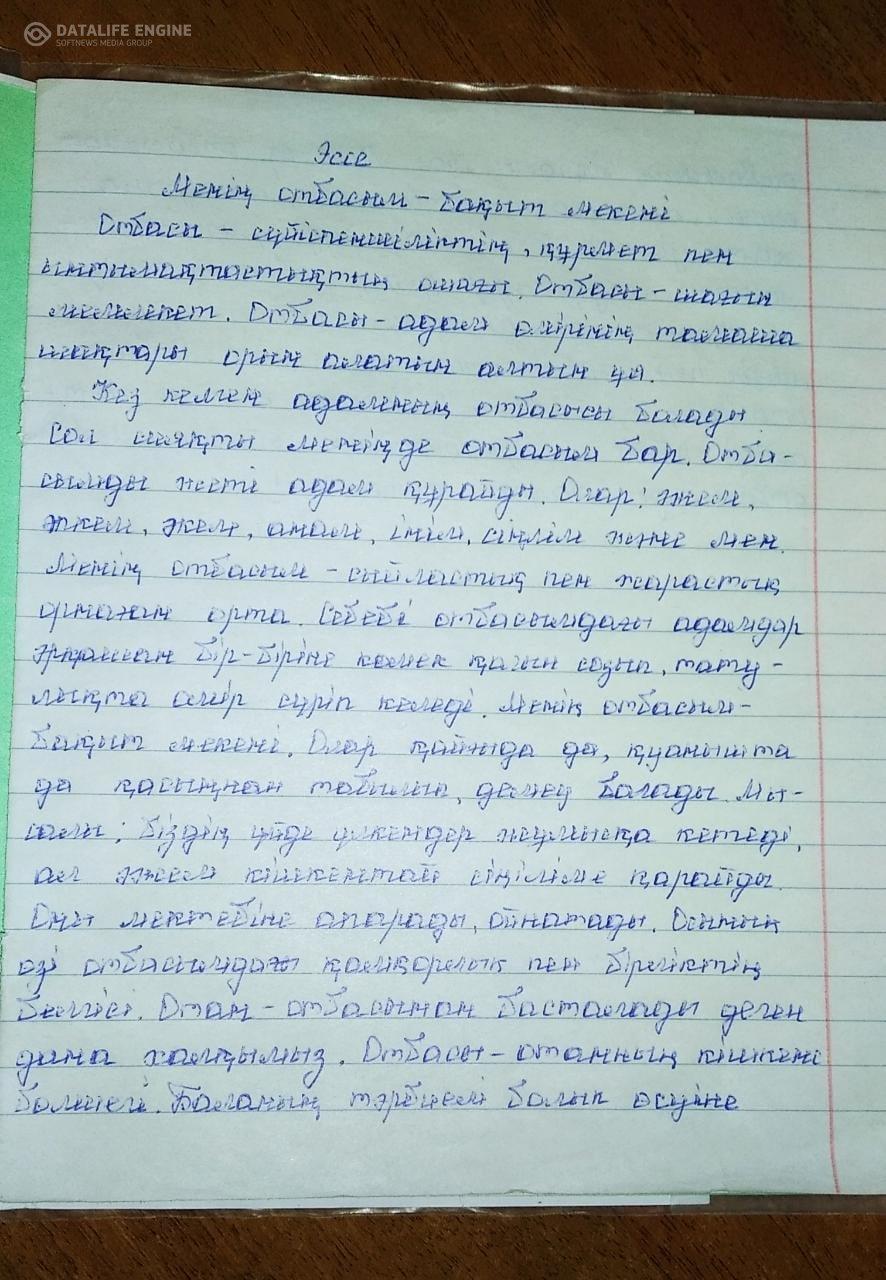 DATALIFE ENGINE
SOFTNEWS MEDIA GROUP
Эссе
Менің отбасым - бақыт мекені
Отбасы - сүйіспеншіліктің, құрмет пен
ынтымақтастықтың ошағы. Отбасы - шағын
мемлекет. Отбасы - адам өмірінің тамаша
шақтары орын алатын алтын ұя.
Кез келген адамның отбасысы болады
Сол сияқты менің де отбасым бар. Отба-
сымды жеті адам құрайды. Олар: әжем,
әкем, анам, інім, сіңлім және мен.
Менің отбасым - сыйластық пен жарастық
орнаған орта. Себебі отбасымдағы адамдар
әрқашан бір-біріне көмек қолын созып, тату-
лықта өмір сүріп келеді. Менің отбасым-
бақыт мекені. Олар қайғыда да, қуанышта
да қасыңнан табылып, демеу болады. Мы-
салы: біздің үйде үлкендер жұмысқа кетеді,
ал әжем кішкентай сіңіліме қарайды.
Оны мектебіне апарады, ойнатады. Осының
өзі отбасымдағы қамқорлық пен бірліктің
белгісі. Отан - отбасынан басталады деген
дана халқымыз. Отбасы - отанның кішкене
бөлшегі. Баланың тәрбиелі болып өсуіне